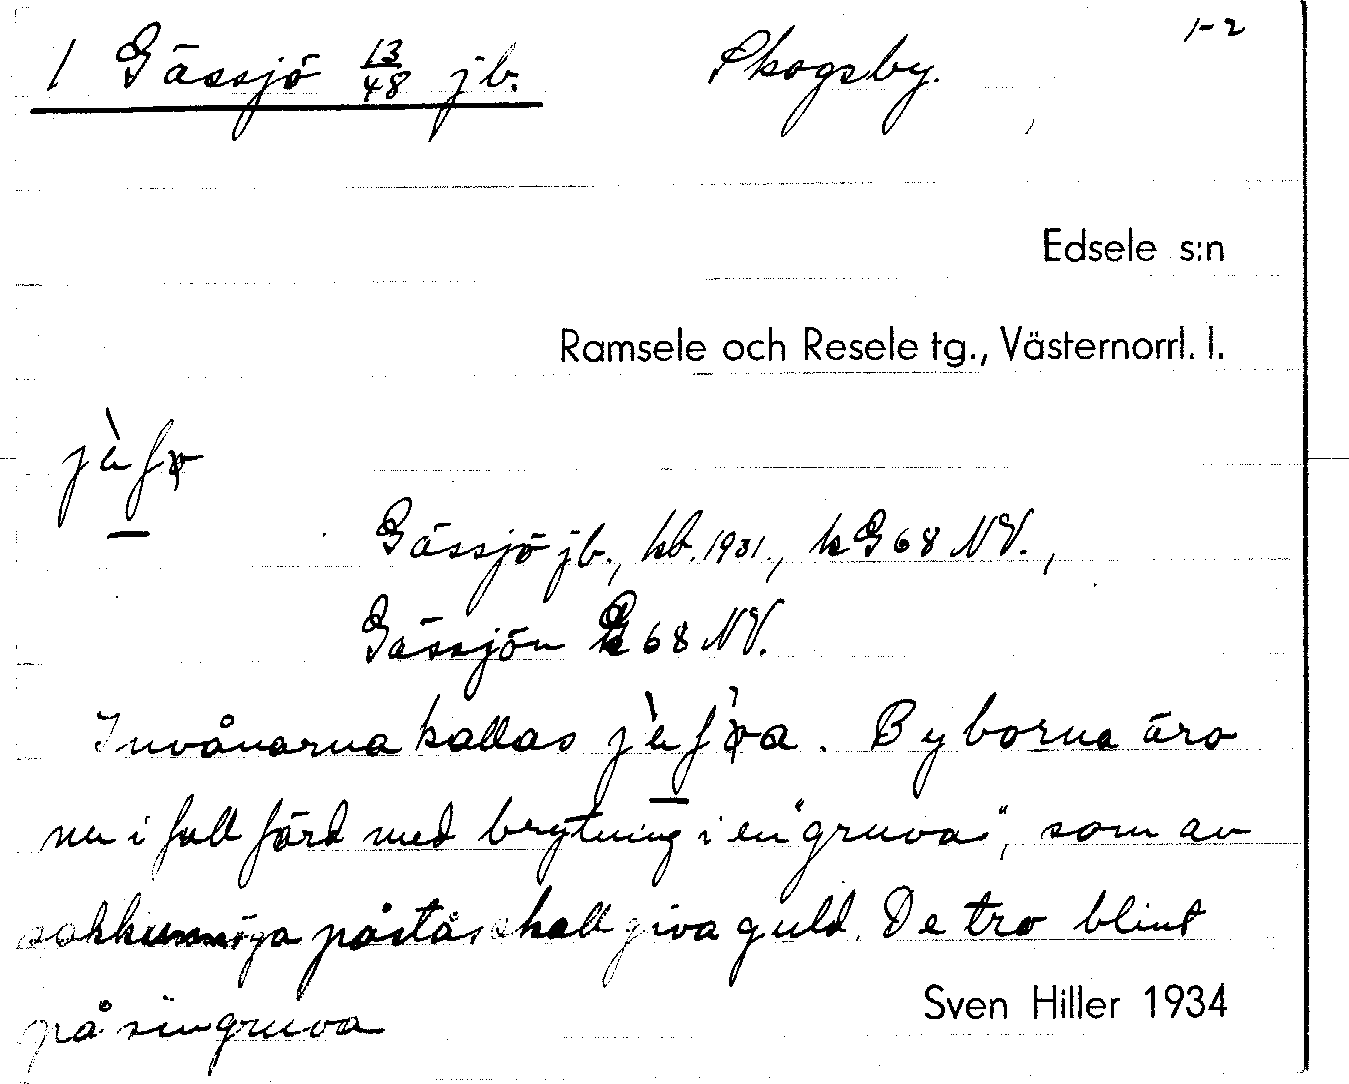 1 Gässjö 13/48 jb. Skogsby. 1-2
Edsele s:n
Ramsele och Resele tg., Västernorrl. l.
Gässjö jb., kb. 1931., k G 68 NV.,
Gässjön G 68 NV.
Invånarna kallas . Byborna äro
nu i full färd med brytning i en "gruva", som av
sakkunniga påstås skall giva guld. De tro blint
på sin gruva
Sven Hiller 1934